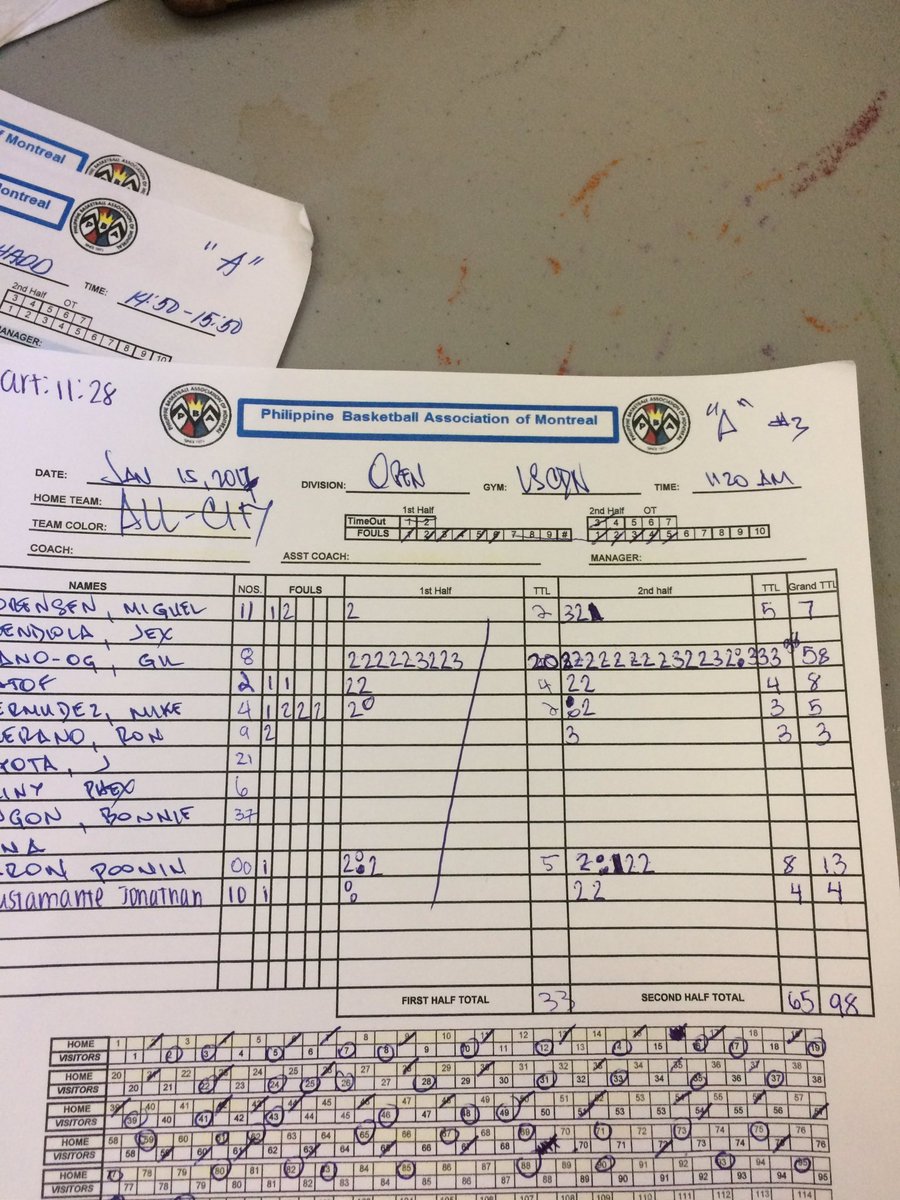 f Montreal
ontreal
"A"
TIME: 14:50-15:50
2nd Half OT
3 4 5 6 7
1 2 3 4 5 6 7 8 9 10
ANAGER:
art: 11:28
PHILIPPINE BASKETBALL ASSOCIATION OF MONTREAL
PBA
Philippine Basketball Association of Montreal
"A" #3
DATE: JAN 15, 2017 DIVISION: OPEN GYM: USCDN TIME: 11:20 AM
HOME TEAM: ALL-CITY
TEAM COLOR:
1st Half 2nd Half OT
TimeOut 1 2 3 4 5 6 7
FOULS 1 2 3 4 5 6 7 8 9 # 1 2 3 4 5 6 7 8 9 10
COACH: ASST COACH: MANAGER:
NAMES NOS. FOULS 1st Half TTL 2nd half TTL Grand TTL
ORENSEN, MIGUEL 11 1 2 2 2 32 5 7
ENDIOLA, JEX
ANO-OG, GIL 8 2222223223 20 33 58
TOF 2 1 1 22 4 22 4 8
ERMUDEZ, MIKE 4 1 2 2 2 20 2 2 3 5
ERANO, RON 9 2 3 3 3
OTA, J 21
INY PHEX 6
NGON, BONNIE 37
NA
RON POONIN 00 1 2 2 5 2 22 8 13
ustamante Jonathan 10 1 22 4 4
FIRST HALF TOTAL 33 SECOND HALF TOTAL 65 98
HOME 1 2 3 4 5 6 7 8 9 10 11 12 13 14 15 16 17 18 19
VISITORS 1 2 3 4 5 6 7 8 9 10 11 12 13 14 15 16 17 18 19
HOME 20 21 22 23 24 25 26 27 28 29 30 31 32 33 34 35 36 37 38
VISITORS 20 21 22 23 24 25 26 27 28 29 30 31 32 33 34 35 36 37 38
HOME 39 40 41 42 43 44 45 46 47 48 49 50 51 52 53 54 55 56 57
VISITORS 39 40 41 42 43 44 45 46 47 48 49 50 51 52 53 54 55 56 57
HOME 58 59 60 61 62 63 64 65 66 67 68 69 70 71 72 73 74 75 76
VISITORS 58 59 60 61 62 63 64 65 66 67 68 69 70 71 72 73 74 75 76
HOME 77 78 79 80 81 82 83 84 85 86 87 88 89 90 91 92 93 94 95
VISITORS